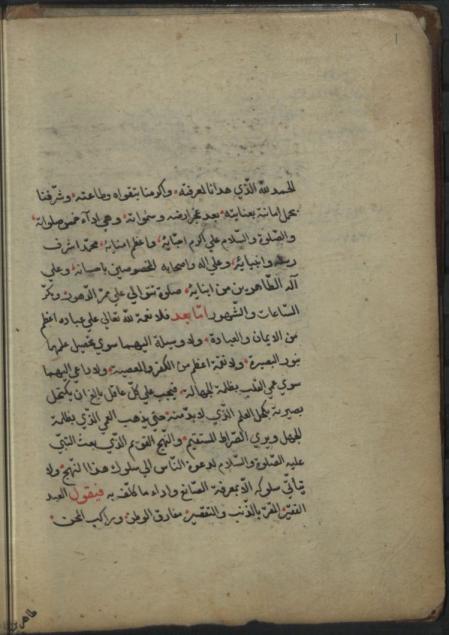 الحمد لله الذي هدانا لمعرفته وأكرمنا بتقواه وطاعته وشرفنا
بحمل امانته بعنايته بعد عجز ارضه وسمواته وهي اداء خمس صلواته
والصلوة والسلام علي اكرم احبائه واعظم امنائه محمد اشرف
رسله وانبيائه وعلي اله واصحابه المخصوصين باصبائه وعلي
آله الطاهرين من ابنائه صلوة تتوالي علي ممر الدهور وتكرر
الساعات والشهور اما بعد فلا نعمة لله تعالي علي عباده اعظم
من الايمان والعبادة ولا وسيلة اليهما سوي تحصيل علمهما
بنور البصيرة ولا نقمة اعظم من الكفر والمعصية ولا داعي اليهما
سوي عمي القلب بظلمة الجهالة فيجب علي كل عاقل بالغ ان يكتحل
بصيرته بكحل العلم الذي لا بد منه حتي يذهب العمي الذي بظلمة
الجهل ويري الصراط المستقيم والنهج القويم الذي بعث النبي
عليه الصلوة والسلام لدعوة الناس الي سلوك هذا النهج ولا
يتأتي سلوكه الا بمعرفة الصانع واداء ما كلف به فيقول العبد
الفقير المقر بالذنب والتقصير مفارق الوطن وراكب المحن